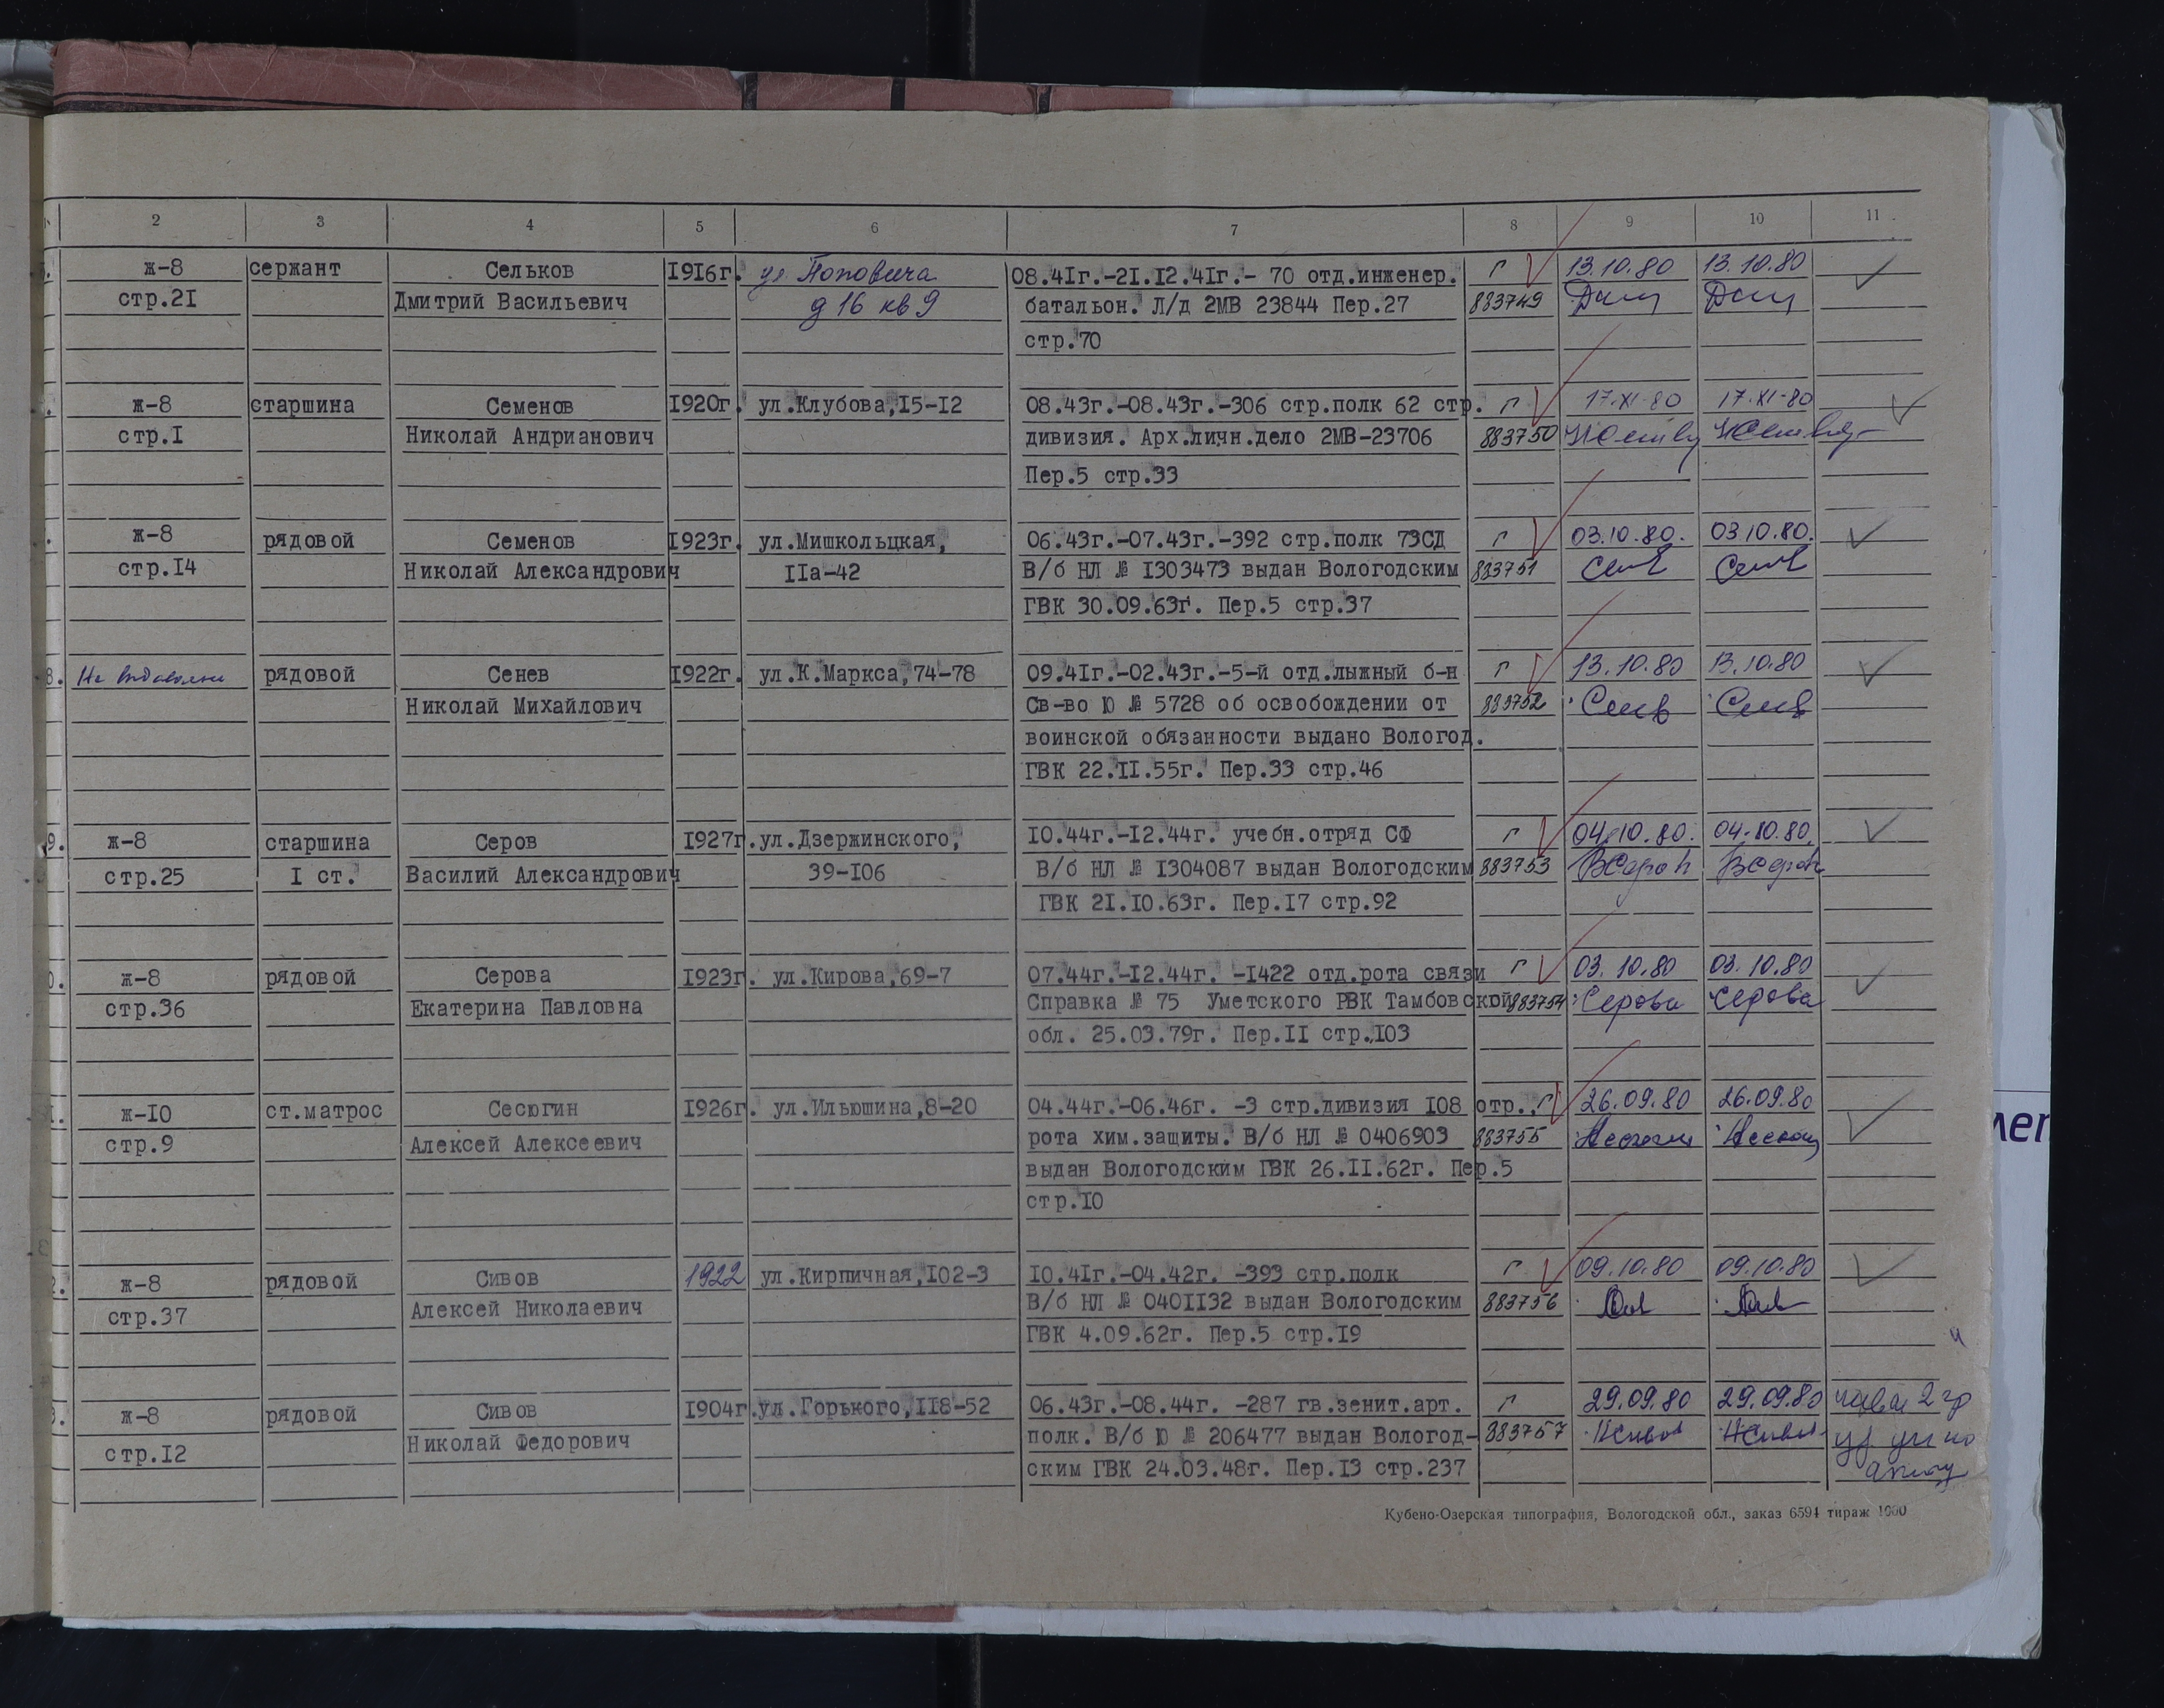 2 3 4 5 6 7 8 9 10 11
ж-8 сержант Сельков I9I6г. ул Поповича 08.4Iг.-2I.I2.4Iг.- 70 отд.инженер. г 13.10.80 13.10.80
стр.2I Дмитрий Васильевич д 16 кв 9 батальон. Л/д 2МВ 23844 Пер.27 883749
стр.70
ж-8 старшина Семенов I920г. ул.Клубова,I5-I2 08.43г.-08.43г.-306 стр.полк 62 стр. г 17.XI-80 17.XI-80
стр.I Николай Андрианович дивизия. Арх.личн.дело 2МВ-23706 883750
Пер.5 стр.33
ж-8 рядовой Семенов I923г. ул.Мишкольцкая, 06.43г.-07.43г.-392 стр.полк 73СД г 03.10.80. 03.10.80.
стр.I4 Николай Александрович IIа-42 В/б НЛ № I303473 выдан Вологодским 883751
ГВК 30.09.63г. Пер.5 стр.37
8. рядовой Сенев I922г. ул.К.Маркса,74-78 09.4Iг.-02.43г.-5-й отд.лыжный б-н г 13.10.80 13.10.80
Николай Михайлович Св-во Ю № 5728 об освобождении от 883752
воинской обязанности выдано Вологод.
ГВК 22.II.55г. Пер.33 стр.46
9. ж-8 старшина Серов I927г. ул.Дзержинского, I0.44г.-I2.44г. учебн.отряд СФ г 04.10.80. 04.10.80.
стр.25 I ст. Василий Александрович 39-I06 В/б НЛ № I304087 выдан Вологодским 883753
ГВК 2I.I0.63г. Пер.I7 стр.92
0. ж-8 рядовой Серова I923г. ул.Кирова,69-7 07.44г.-I2.44г. -I422 отд.рота связи г 03.10.80 03.10.80
стр.36 Екатерина Павловна Справка № 75 Уметского РВК Тамбовской 883754 Серова Серова
обл. 25.03.79г. Пер.II стр.I03
1. ж-I0 ст.матрос Сесюгин I926г. ул.Ильюшина,8-20 04.44г.-06.46г. -3 стр.дивизия I08 отр., г 26.09.80 26.09.80
стр.9 Алексей Алексеевич рота хим.защиты. В/б НЛ № 0406903 883755
выдан Вологодским ГВК 26.II.62г. Пер.5
стр.I0
2. ж-8 рядовой Сивов 1922 ул.Кирпичная,I02-3 I0.4Iг.-04.42г. -393 стр.полк г 09.10.80 09.10.80
стр.37 Алексей Николаевич В/б НЛ № 040II32 выдан Вологодским 883756
ГВК 4.09.62г. Пер.5 стр.I9
3. ж-8 рядовой Сивов I904г. ул.Горького,II8-52 06.43г.-08.44г. -287 гв.зенит.арт. г 29.09.80 29.09.80
стр.I2 Николай Федорович полк. В/б Ю № 206477 выдан Вологод- 883757
ским ГВК 24.03.48г. Пер.I3 стр.237
Кубено-Озерская типография, Вологодской обл., заказ 6594 тираж 1000